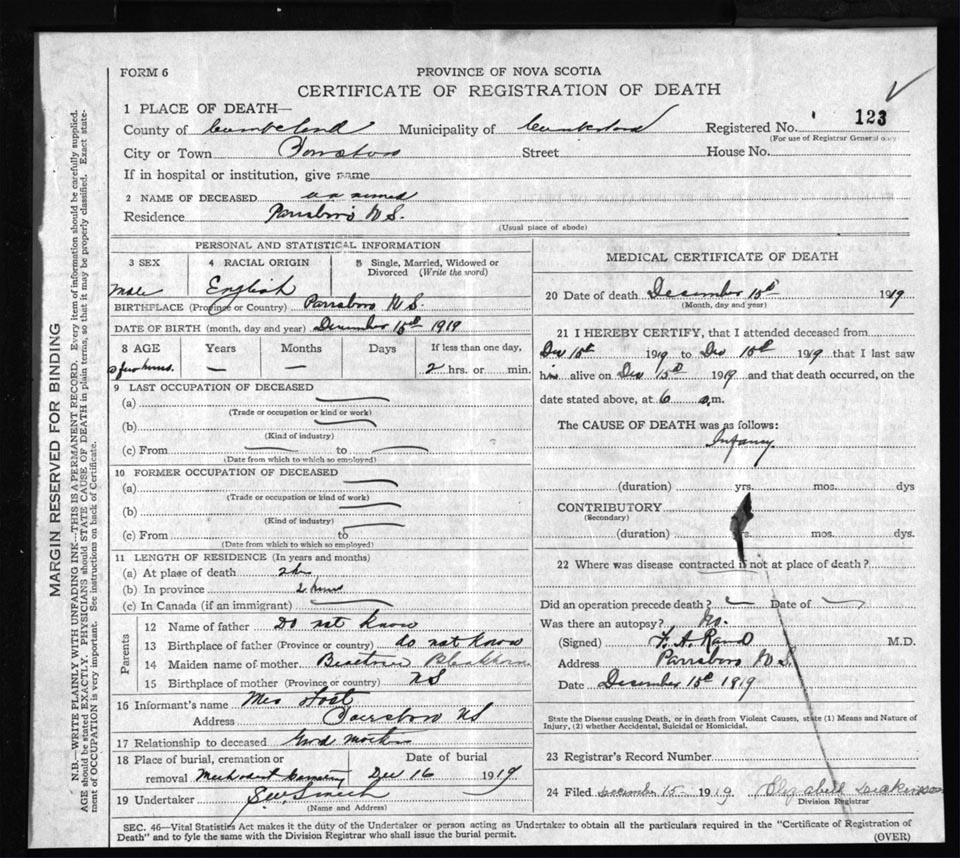 FORM 6
PROVINCE OF NOVA SCOTIA
CERTIFICATE OF REGISTRATION OF DEATH
1 PLACE OF DEATH—
County of Cumberland Municipality of Cumberland Registered No. 123
(For use of Registrar General only)
City or Town Parrsboro Street House No.
If in hospital or institution, give name
2 NAME OF DECEASED un named
Residence Parrsboro N S.
(Usual place of abode)
PERSONAL AND STATISTICAL INFORMATION
3 SEX 4 RACIAL ORIGIN 5 Single, Married, Widowed or Divorced (Write the word)
Male English
BIRTHPLACE (Province or Country) Parrsboro N S.
DATE OF BIRTH (month, day and year) December 15th 1919
8 AGE Years Months Days If less than one day,
a few hours. — — 2 hrs. or min.
9 LAST OCCUPATION OF DECEASED
(a)
(Trade or occupation or kind or work)
(b)
(Kind of industry)
(c) From to
(Date from which to which so employed)
10 FORMER OCCUPATION OF DECEASED
(a)
(Trade or occupation or kind of work)
(b)
(Kind of industry)
(c) From to
(Date from which to which so employed)
11 LENGTH OF RESIDENCE (In years and months)
(a) At place of death 2 hrs
(b) In province 2 hours
(c) In Canada (if an immigrant)
Parents
12 Name of father Do not know
13 Birthplace of father (Province or country) do not know
14 Maiden name of mother
15 Birthplace of mother (Province or country) N S
16 Informant's name Mrs
Address Parrsboro N S
17 Relationship to deceased Grand mother
18 Place of burial, cremation or removal Methodist Cemetery Date of burial Dec 16 1919
19 Undertaker Smith
(Name and Address)
MEDICAL CERTIFICATE OF DEATH
20 Date of death December 15th 1919
(Month, day and year)
21 I HEREBY CERTIFY, that I attended deceased from
Dec 15th 1919 to Dec 15th 1919 that I last saw
his alive on Dec 15th 1919 and that death occurred, on the
date stated above, at 6 a.m.
The CAUSE OF DEATH was as follows:
Infancy
(duration) yrs. mos. dys
CONTRIBUTORY
(Secondary)
(duration) yrs. mos. dys.
22 Where was disease contracted if not at place of death?
Did an operation precede death? Date of
Was there an autopsy? No.
(Signed) F. A. Rand M.D.
Address Parrsboro N S
Date December 15th 1919
State the Disease causing Death, or in death from Violent Causes, state (1) Means and Nature of
Injury, (2) whether Accidental, Suicidal or Homicidal.
23 Registrar's Record Number
24 Filed December 15 1919 Elizabeth Dickinson
Division Registrar
SEC. 46—Vital Statistics Act makes it the duty of the Undertaker or person acting as Undertaker to obtain all the particulars required in the "Certificate of Registration of
Death" and to fyle the same with the Division Registrar who shall issue the burial permit.
(OVER)
MARGIN RESERVED FOR BINDING
N.B.—WRITE PLAINLY WITH UNFADING INK—THIS IS A PERMANENT RECORD. Every item of information should be carefully supplied.
AGE should be stated EXACTLY. PHYSICIANS should STATE CAUSE OF DEATH in plain terms, so that it may be properly classified. Exact state-
ment of OCCUPATION is very important. See instructions on back of Certificate.